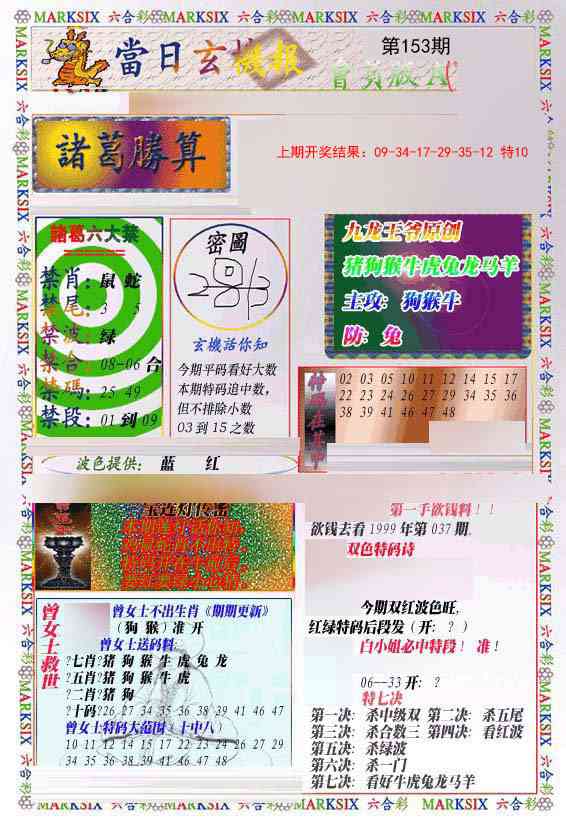 MARKSIX 六合彩 MARKSIX 六合彩 MARKSIX 六合彩 MARKSIX 六合彩
當日玄機報
第153期
會員版A
諸葛勝算
上期开奖结果：09-34-17-29-35-12 特10
諸葛六大禁
禁肖：鼠 蛇
禁尾：3 5
禁波：绿
禁合：08-06 合
禁碼：25 49
禁段：01 到 09
密圖
玄機活你知
今期平码看好大数
本期特码追中数，
但不排除小数
03 到 15 之数
九龙王爷原创
猪狗猴牛虎兔龙马羊
主攻：狗猴牛
防：兔
02 03 05 10 11 12 14 15 17
22 23 24 26 27 29 34 35 36
38 39 41 46 47 48
波色提供： 蓝 红
第一手欲钱料！！
欲钱去看 1999 年第 037 期.
双色特码诗
今期双红波色旺，
红绿特码后段发（开：？）
白小姐必中特段！ 准！
06--33 开：？
特七决
第一决：杀中级双 第二决：杀五尾
第三决：杀合数三 第四决：看红波
第五决：杀绿波
第六决：杀一门
第七决：看好牛虎兔龙马羊
曾女士救世
曾女士不出生肖《期期更新》
（狗 猴）准 开
曾女士送码料:
?七肖?猪 狗 猴 牛 虎 兔 龙
?五肖?猪 狗 猴 牛 虎
?二肖?猪 狗
?十码?26 27 34 35 36 38 39 41 46 47
曾女士特码大范围（十中八）
10 11 12 14 15 17 22 23 24 26 27 29
34 35 36 38 39 41 46 47 48
MARKSIX 六合彩 MARKSIX 六合彩 MARKSIX 六合彩 MARKSIX 六合彩